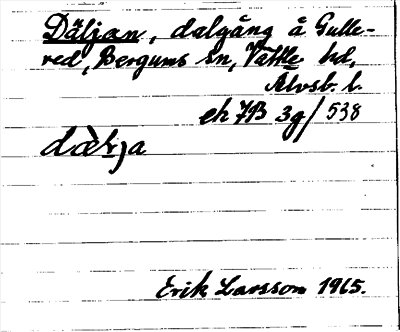 Däljan, dalgång å Gulle-
red, Bergums sn, Vättle hd,
Älvsb. l.
ek 7B 3g/538
dæ̀lja
Erik Larsson 1965.